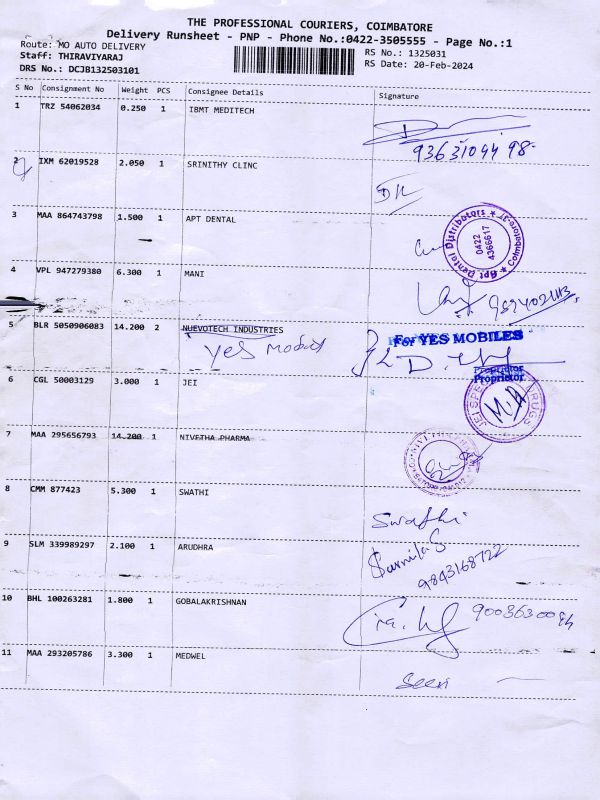 THE PROFESSIONAL COURIERS, COIMBATORE
Delivery Runsheet - PNP - Phone No.:0422-3505555 - Page No.:1
Route: MO AUTO DELIVERY
RS No.: 1325031
Staff: THIRAVIYARAJ
RS Date: 20-Feb-2024
DRS No.: DCJB132503101
S No Consignment No Weight PCS Consignee Details Signature
1 TRZ 54062034 0.250 1 IBMT MEDITECH
9363104498-
2 IXM 62019528 2.050 1 SRINITHY CLINC
3 MAA 864743798 1.500 1 APT DENTAL
Apt Dental Distributors * Coimbatore-37 *
0422
4366617
4 VPL 947279380 6.300 1 MANI
5 BLR 5050906083 14.200 2 NUEVOTECH INDUSTRIES
For YES MOBILES
Yes Mobiles
Proprietor
Proprietor
6 CGL 50003129 3.000 1 JEI
7 MAA 295656793 14.200 1 NIVETHA PHARMA
8 CMM 877423 5.300 1 SWATHI
Swathi
9 SLM 339989297 2.100 1 ARUDHRA
Sharmila S
9843168722
10 BHL 100263281 1.800 1 GOBALAKRISHNAN
11 MAA 293205786 3.300 1 MEDWEL